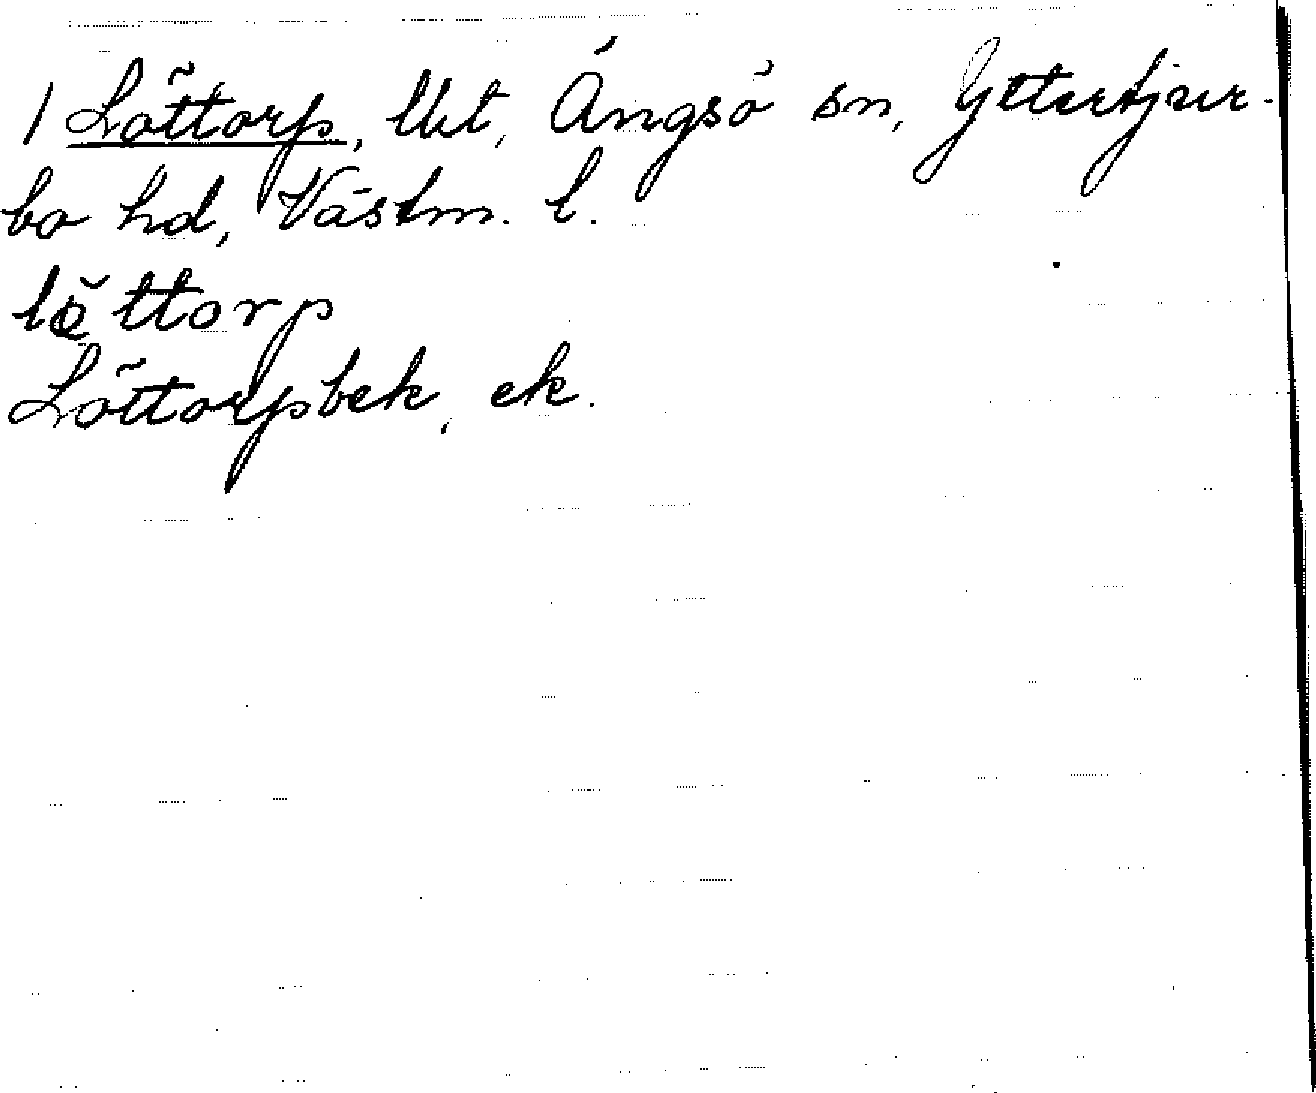 1 Löttorp, lht, Ängsö sn, Yttertjur-
bo hd, Västm. l.
lö̌ttorp
Löttorpsbek, ek.